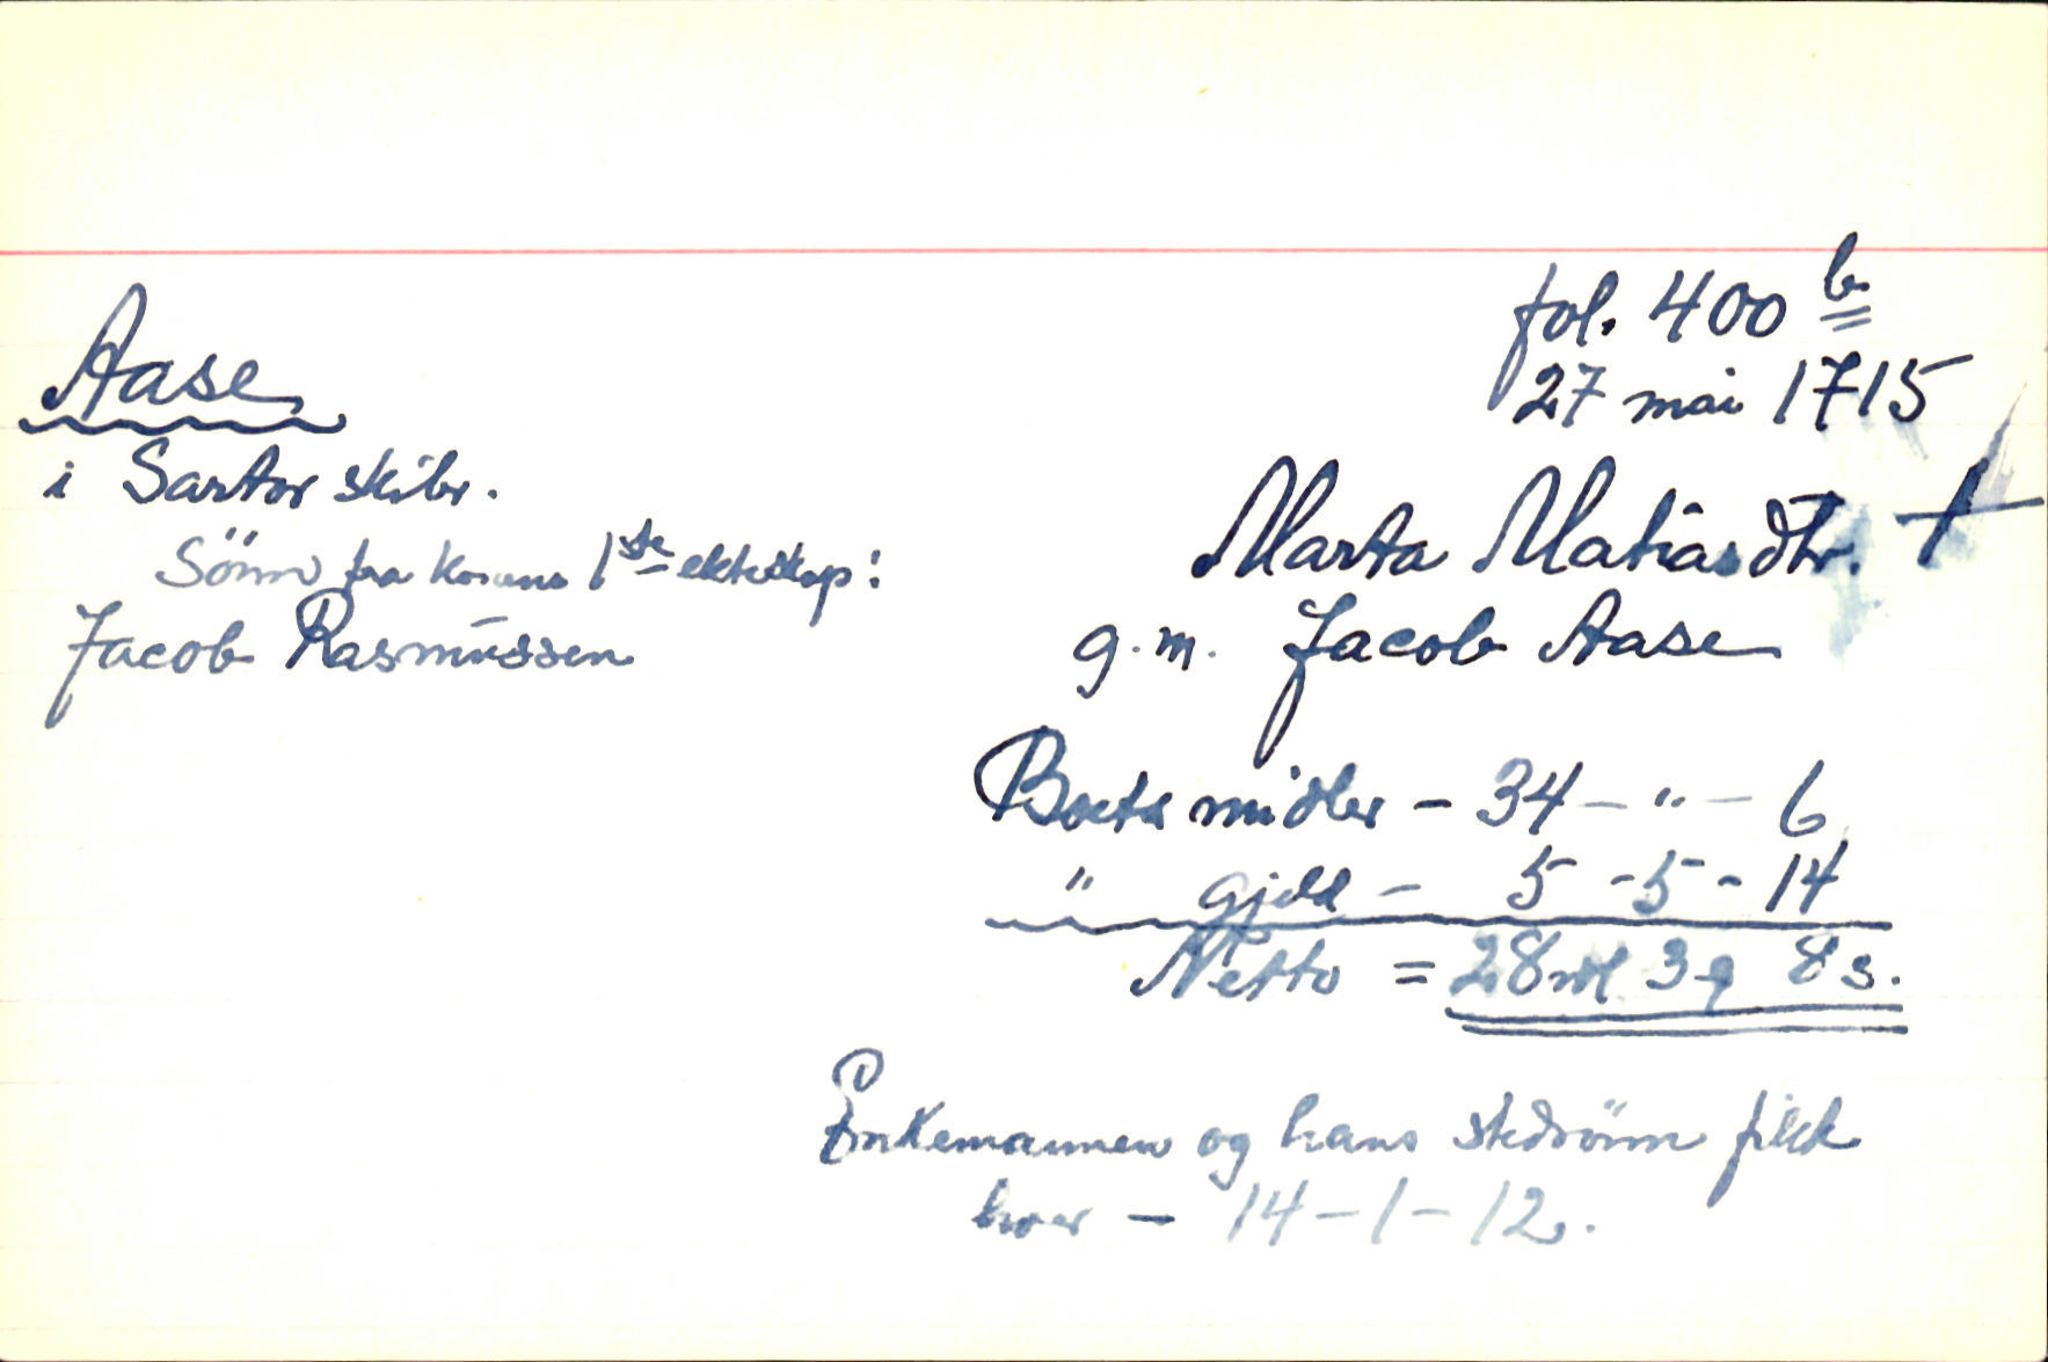 fol. 400 b
27 mai 1715
Aase
i Sartor skibr.
Sönn fra konens 1ste ekteskap:
Jacob Rasmussen
Marta Matiasdtr. †
g.m. Jacob Aase
Boets midler - 34 - " - 6
" gjeld - 5 - 5 - 14
Netto = 28 rdl 3 q 8 s.
Enkemannen og hans stedsönn fikk
hver - 14 - 1 - 12.